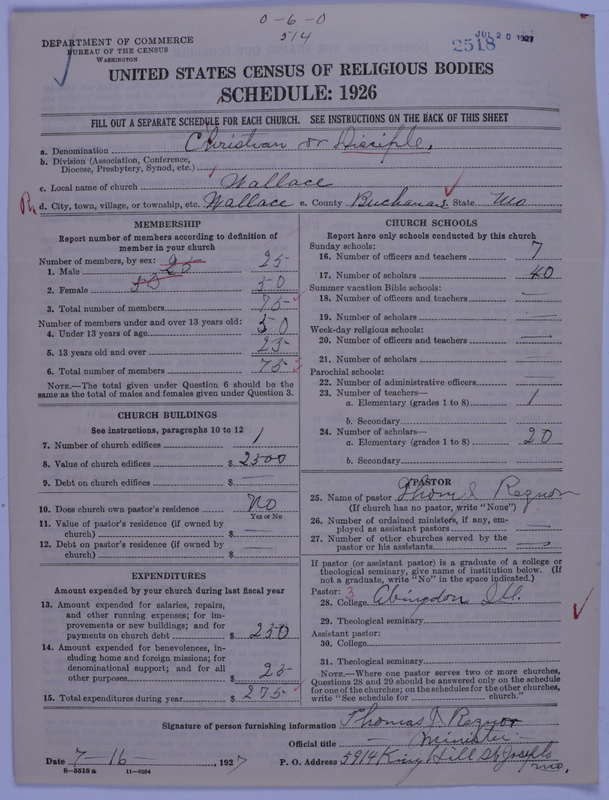 0-6-0
514
DEPARTMENT OF COMMERCE
BUREAU OF THE CENSUS
WASHINGTON
2518
JUL 20 1927
UNITED STATES CENSUS OF RELIGIOUS BODIES
SCHEDULE: 1926
FILL OUT A SEPARATE SCHEDULE FOR EACH CHURCH. SEE INSTRUCTIONS ON THE BACK OF THIS SHEET
a. Denomination Christian or Disciple.
b. Division (Association, Conference,
Diocese, Presbytery, Synod, etc.)
c. Local name of church Wallace
d. City, town, village, or township, etc. Wallace e. County Buchanan f. State Mo
MEMBERSHIP
Report number of members according to definition of
member in your church
Number of members, by sex:
1. Male 25
2. Female 50
3. Total number of members 75
Number of members under and over 13 years old:
4. Under 13 years of age 50
5. 13 years old and over 25
6. Total number of members 75
NOTE.—The total given under Question 6 should be the
same as the total of males and females given under Question 3.
CHURCH BUILDINGS
See instructions, paragraphs 10 to 12
7. Number of church edifices 1
8. Value of church edifices $ 2500
9. Debt on church edifices $ —
10. Does church own pastor's residence No
Yes or No
11. Value of pastor's residence (if owned by
church) $ —
12. Debt on pastor's residence (if owned by
church) $ —
EXPENDITURES
Amount expended by your church during last fiscal year
13. Amount expended for salaries, repairs,
and other running expenses; for im-
provements or new buildings; and for
payments on church debt $ 250
14. Amount expended for benevolences, in-
cluding home and foreign missions; for
denominational support; and for all
other purposes $ 25
15. Total expenditures during year $ 275
CHURCH SCHOOLS
Report here only schools conducted by this church
Sunday schools:
16. Number of officers and teachers 7
17. Number of scholars 40
Summer vacation Bible schools:
18. Number of officers and teachers —
19. Number of scholars —
Week-day religious schools:
20. Number of officers and teachers —
21. Number of scholars —
Parochial schools:
22. Number of administrative officers —
23. Number of teachers—
a. Elementary (grades 1 to 8) 1
b. Secondary
24. Number of scholars—
a. Elementary (grades 1 to 8) 20
b. Secondary
PASTOR
25. Name of pastor Thom J Reznor
(If church has no pastor, write "None")
26. Number of ordained ministers, if any, em-
ployed as assistant pastors —
27. Number of other churches served by the
pastor or his assistants
If pastor (or assistant pastor) is a graduate of a college or
theological seminary, give name of institution below. (If
not a graduate, write "No" in the space indicated.)
Pastor: 3
28. College Abingdon Ill.
29. Theological seminary
Assistant pastor:
30. College
31. Theological seminary
NOTE.—Where one pastor serves two or more churches,
Questions 28 and 29 should be answered only on the schedule
for one of the churches; on the schedules for the other churches,
write "See schedule for church."
Signature of person furnishing information Thomas J Reznor
Official title — Minister —
Date 7-16 —, 1927 P. O. Address 5914 King Hill St Joseph
Mo.
8—5518 a 11—9354